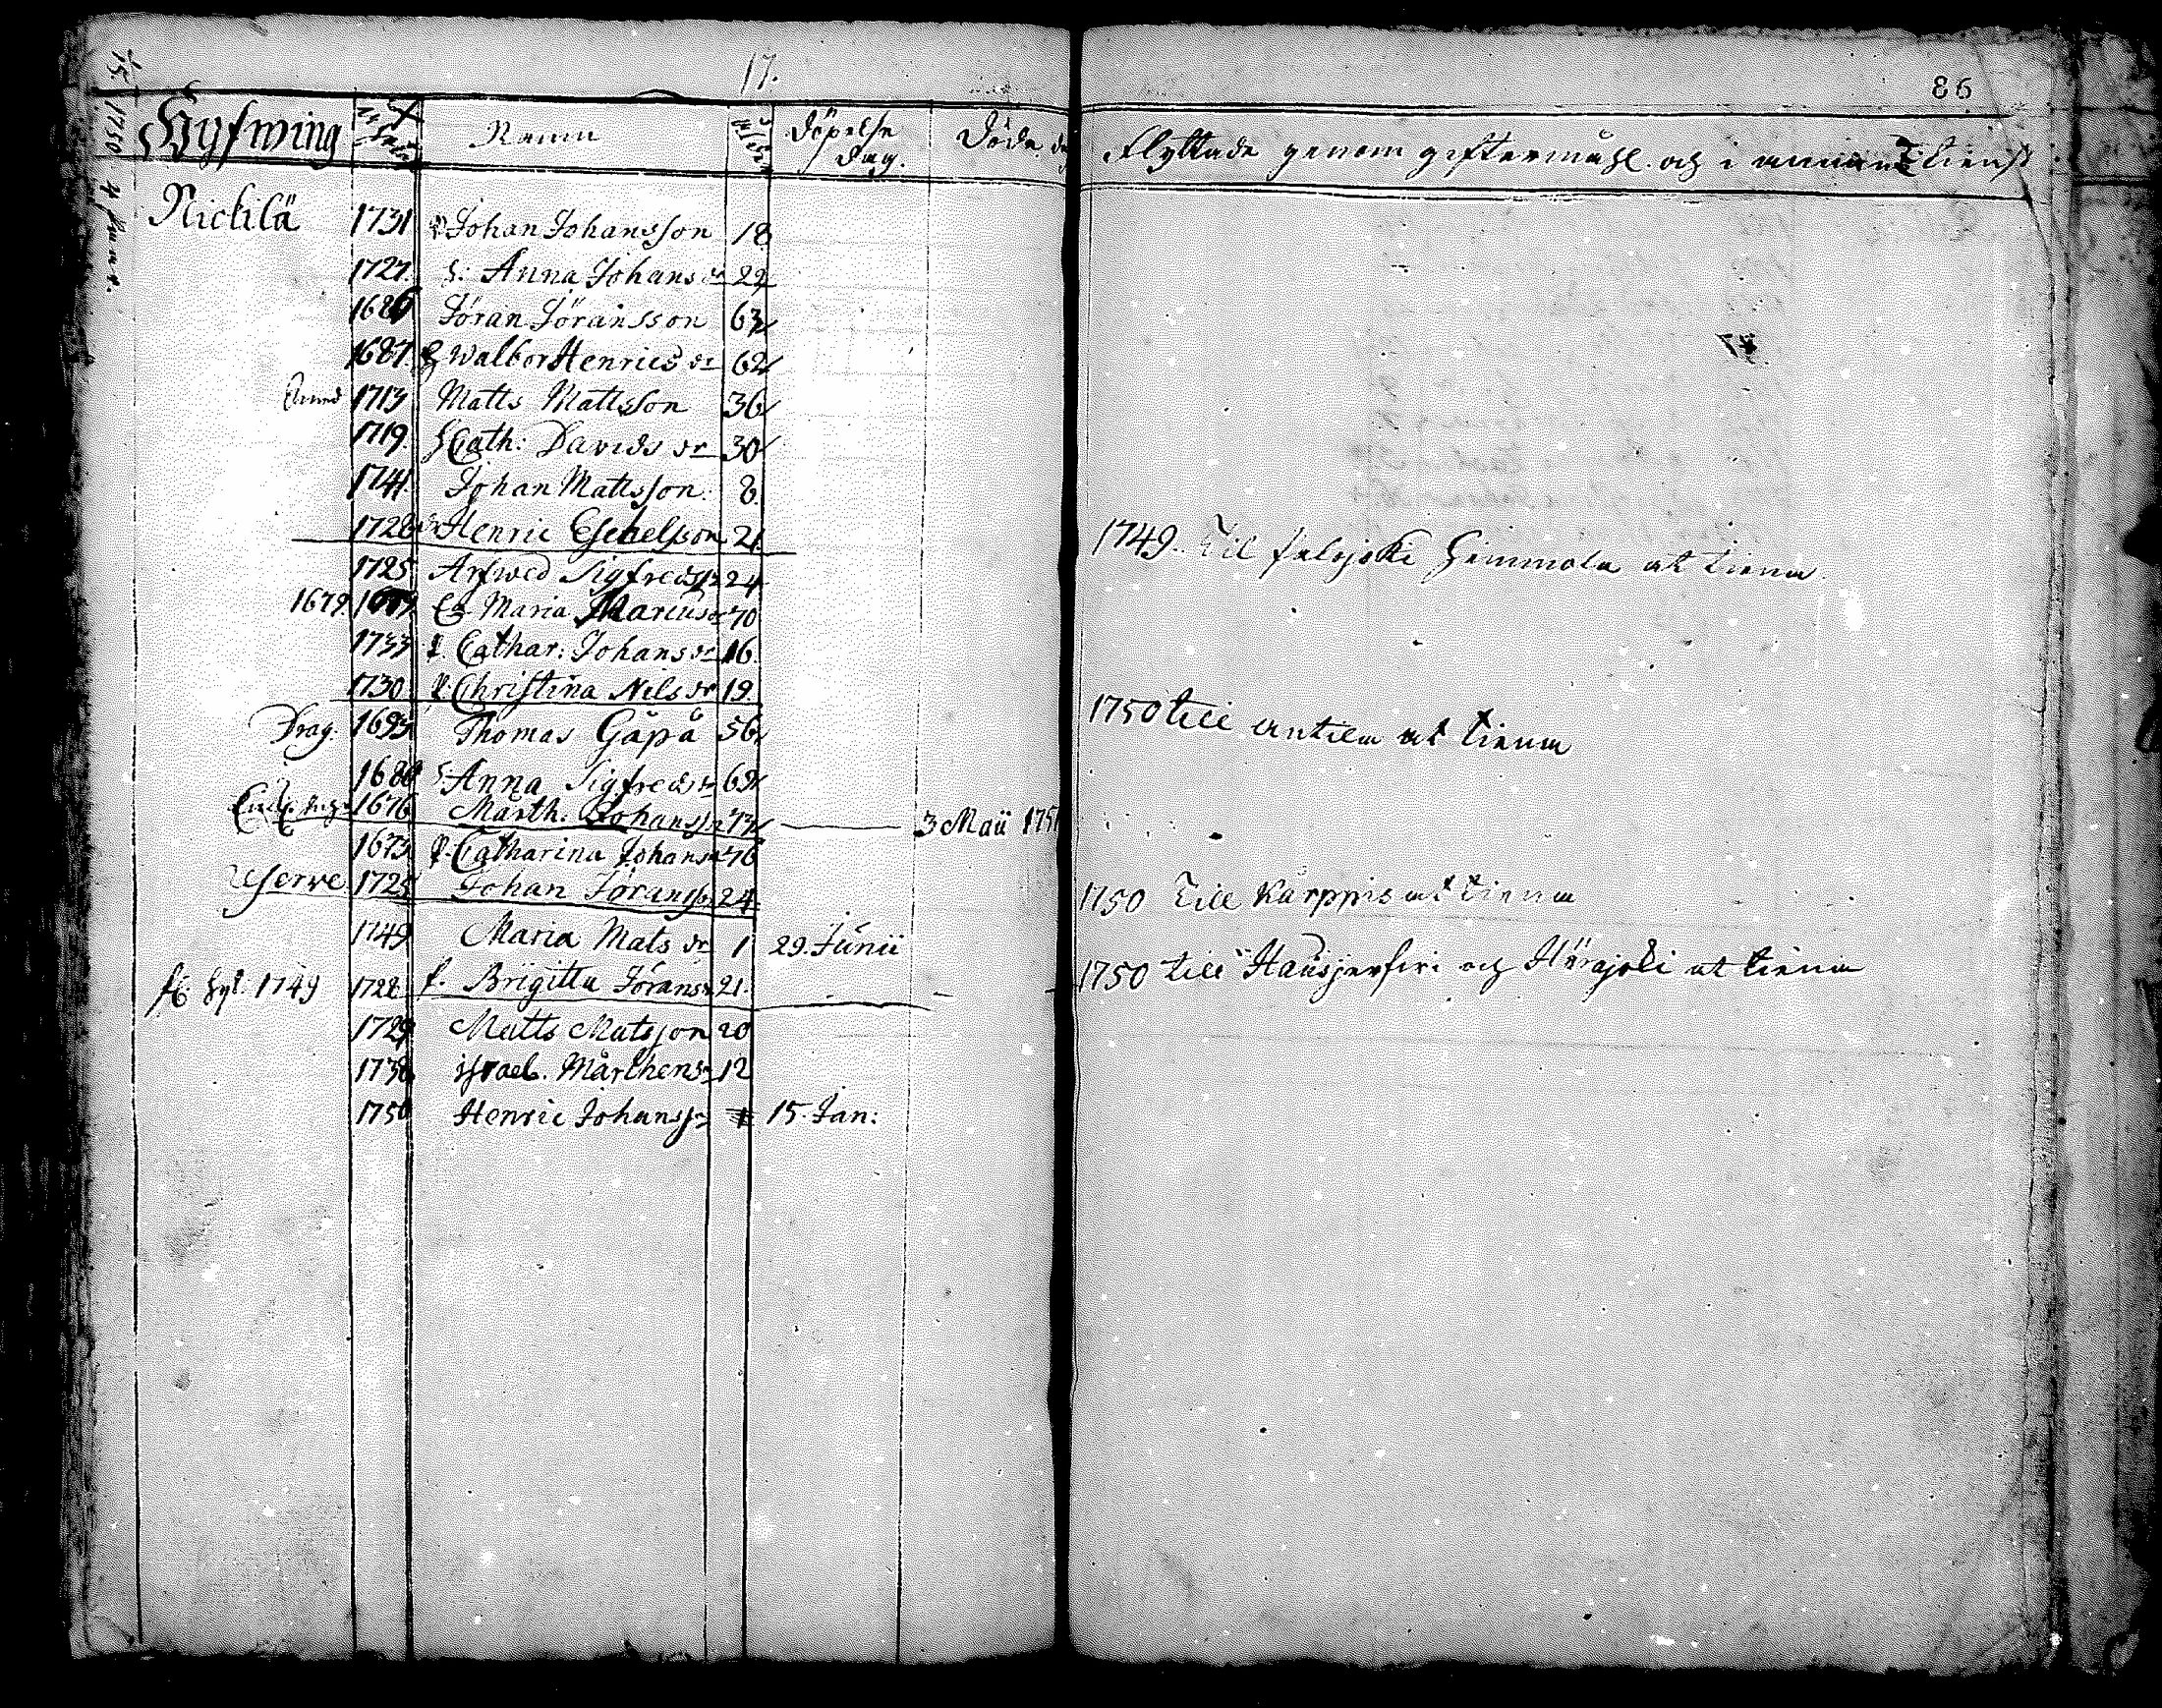 17.
86
Hyfwing Namn Döpelse dag. Döde Flyttade genom giftermåhl och i annan tienst
Nickilä 1731 Johan Johansson 18
1727. h: Anna Johans dr 22
1686 Jöran Jöransson 63
1687. Walbor Henrics dr 62
1713 Matts Mattsson 36
1719. h Cath: Davids dr 30
1741. Johan Mattsson. 8.
1728 Henric Eschelsson 21. 1749. Til at tiena
1725 Arfwed Sigfredss 24
1679 1679 Maria Marcus dr 70
1733 p. Cathar: Johans dr 16.
1730. p. Christina Nils dr 19. 1750 till Antila at tiena
Drag: 1693 Thomas Gåpå 56
1680 h: Anna Sigfreds dr 69
1676 Marth. Johanss 73 3 Maii 1751
1673 p. Catharina Johans dr 76
Reserve 1725 Johan Jöranss. 24. 1750 Till Kärppis at tiena
1749 Maria Mats dr 1 29. Junii
1749 1728 p. Brigitta Jörans dr 21. 1750 till Hausjerfwi och at tiena
1729 Matts Matsson 20
1738 Israel. Mårthens 12
1750 Henric Johanss 15. Jan: